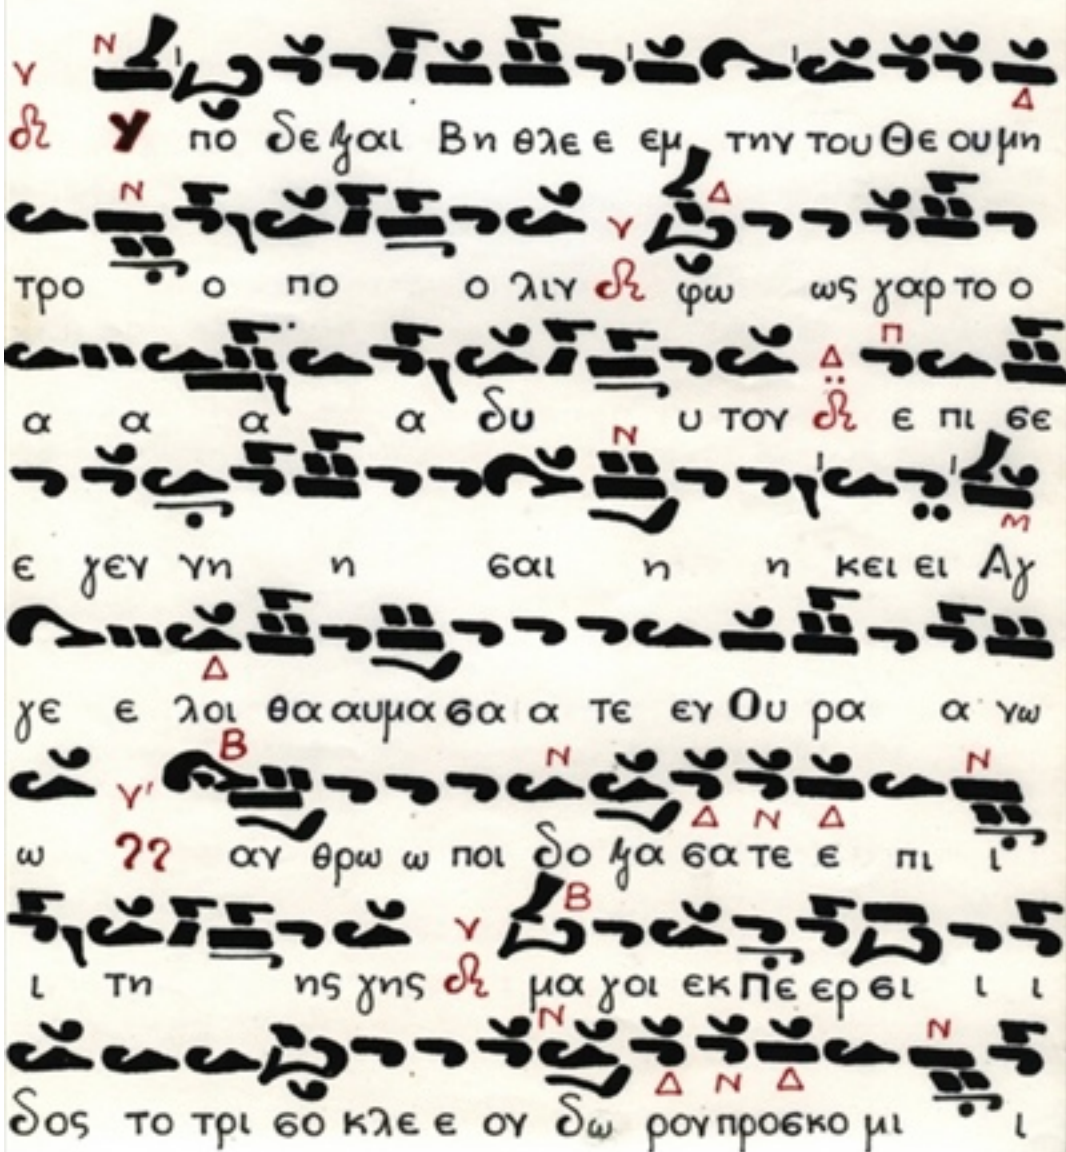 Υ πο δε ξαι Βη θλε ε εμ την του Θε ου μη
τρο ο πο ο λιν φω ως γαρ το ο
α α α α δυ υ τον ε πι σε
ε γεν νη η σαι η η κει ει Αγ
γε ε λοι θα αυ μα σα α τε εν Ου ρα α νω
ω αν θρω ω ποι δο ξα σα τε ε πι ι
ι τη ης γης μα γοι εκ Πε ερ σι ι ι
δος το τρι σο κλε ε ον δω ρον προσ κο μι ι